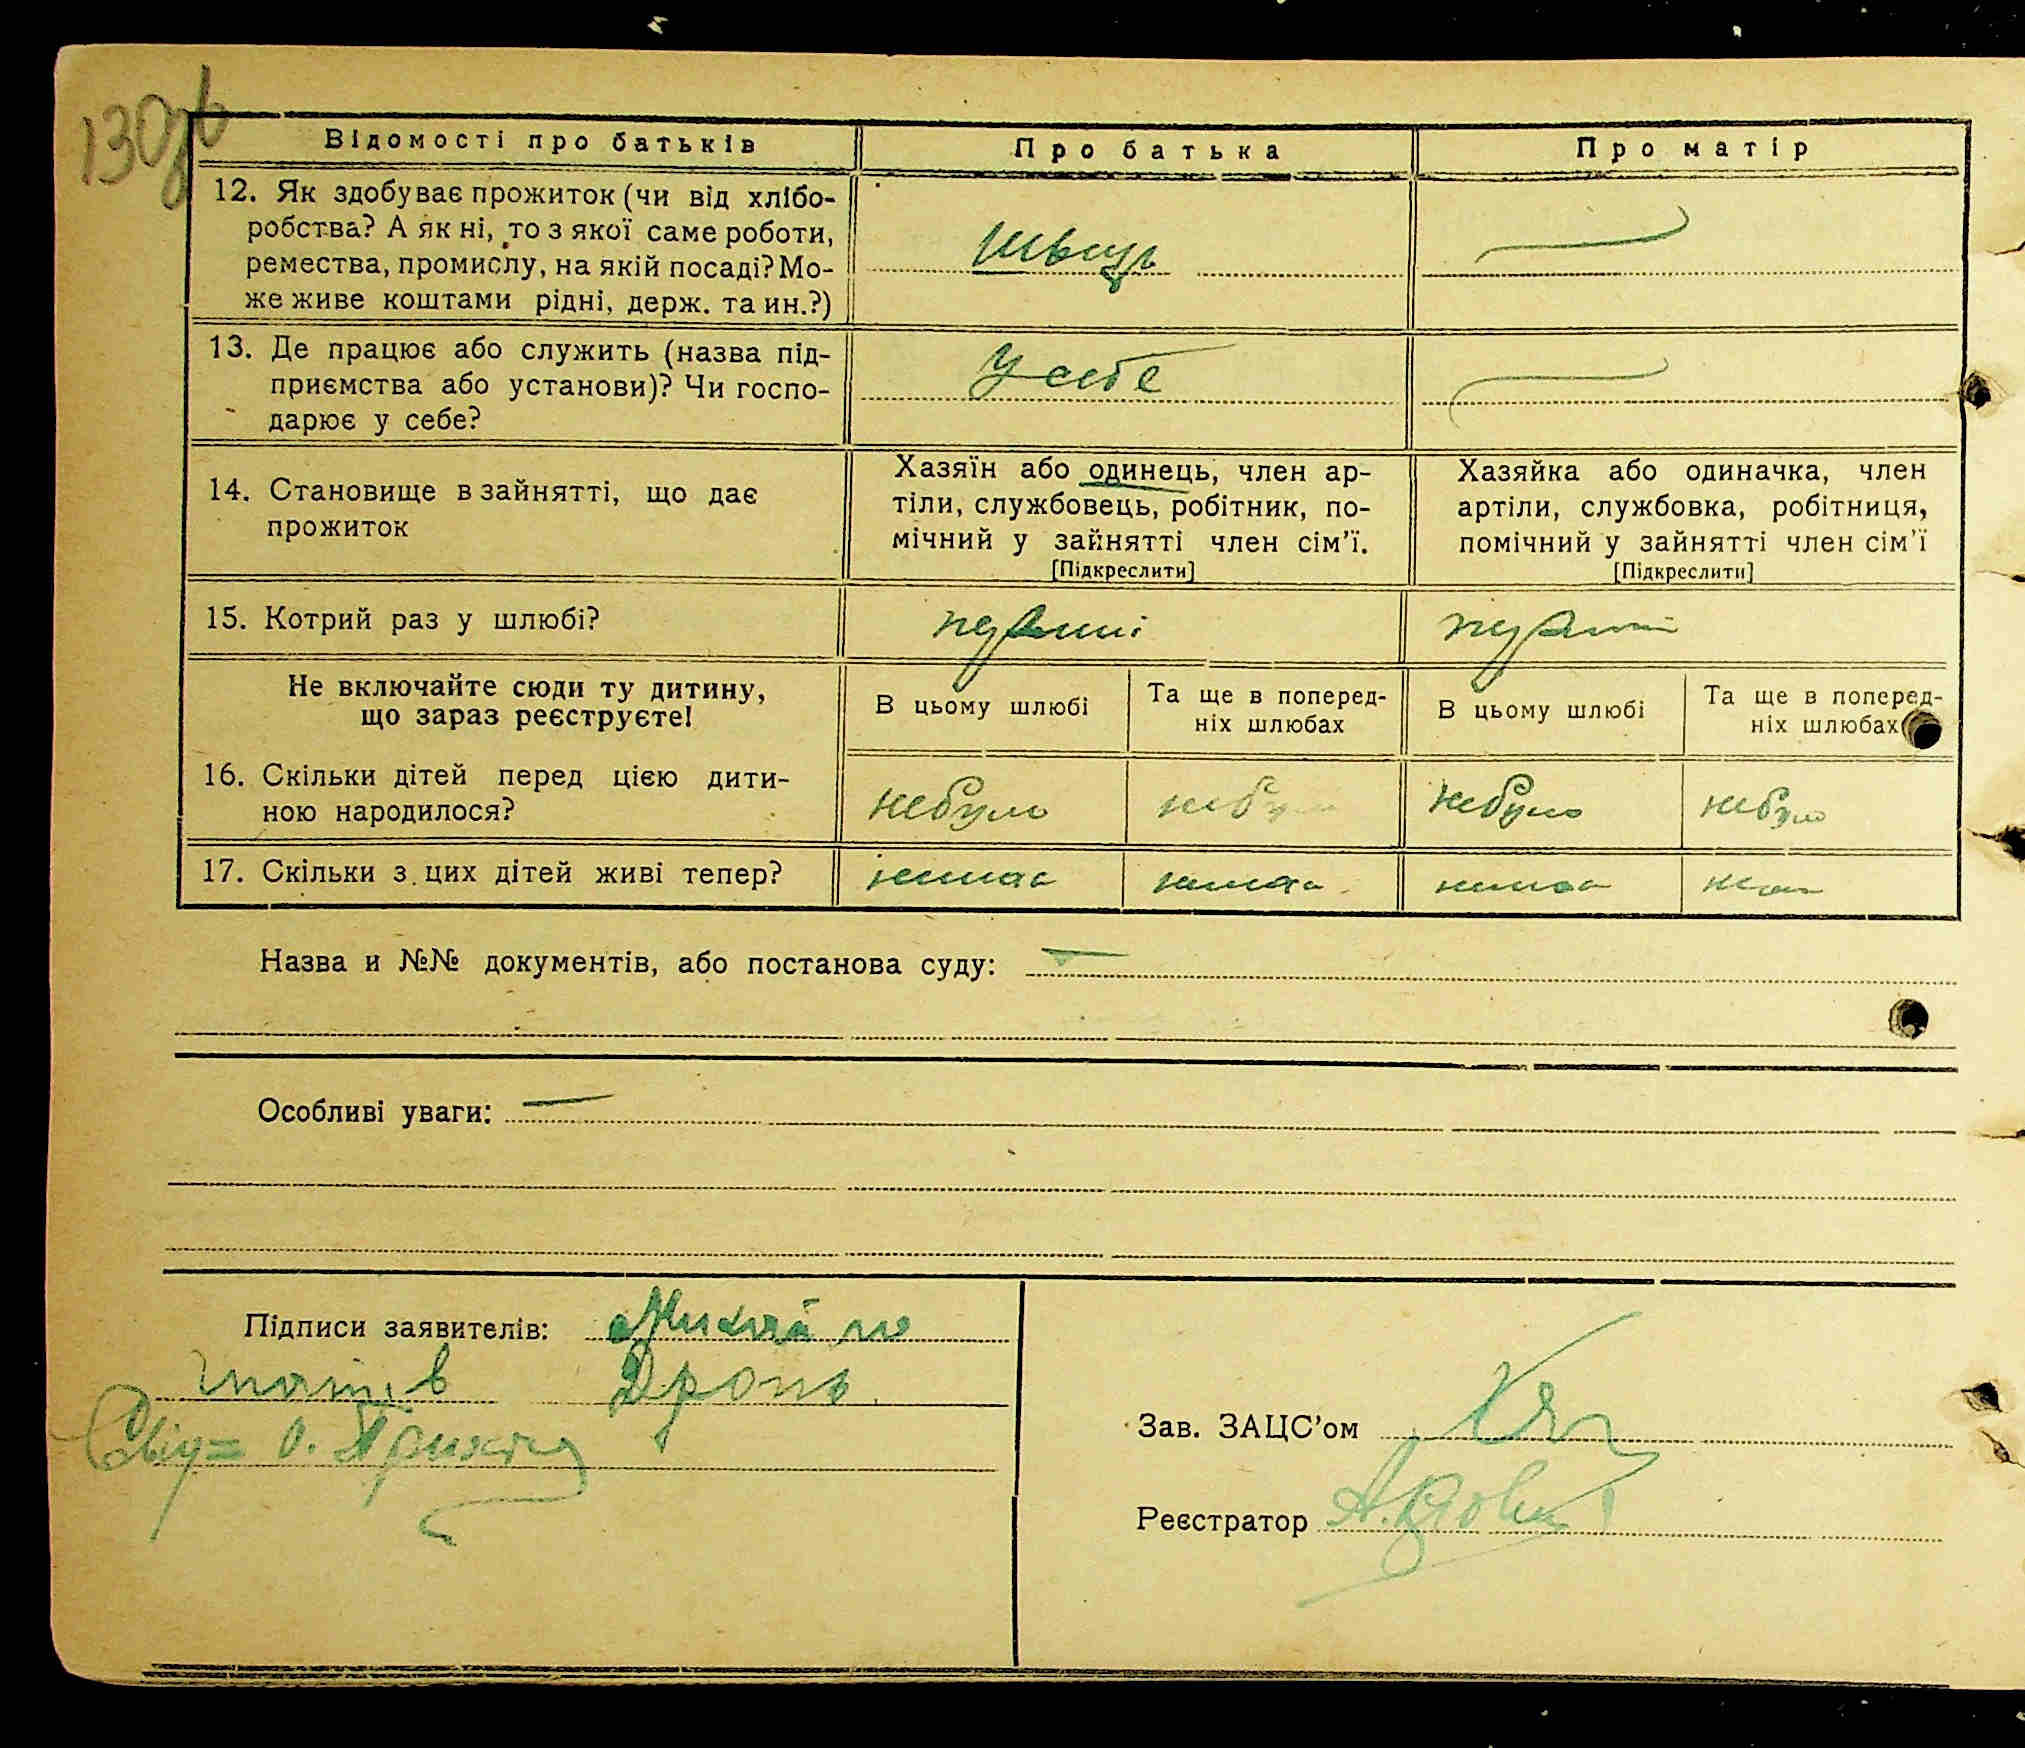 130зв
Відомості про батьків
Про батька
Про матір
12. Як здобуває прожиток (чи від хлібо-
робства? А як ні, то з якої саме роботи,
ремества, промислу, на якій посаді? Мо-
же живе коштами рідні, держ. та ин.?)
швець
13. Де працює або служить (назва під-
приємства або установи)? Чи госпо-
дарює у себе?
У себе
14. Становище в зайнятті, що дає
прожиток
Хазяїн або одинець, член ар-
тіли, службовець, робітник, по-
мічний у зайнятті член сім'ї.
[Підкреслити]
Хазяйка або одиначка, член
артіли, службовка, робітниця,
помічний у зайнятті член сім'ї
[Підкреслити]
15. Котрий раз у шлюбі?
перший
перший
Не включайте сюди ту дитину,
що зараз реєструєте!
В цьому шлюбі
Та ще в поперед-
ніх шлюбах
В цьому шлюбі
Та ще в поперед-
ніх шлюбах
16. Скільки дітей перед цією дити-
ною народилося?
небуло
небуло
небуло
небуло
17. Скільки з цих дітей живі тепер?
немає
немає
немає
немає
Назва и №№ документів, або постанова суду:
Особливі уваги:
Підписи заявителів:
Дропь
Зав. ЗАЦС'ом
Реєстратор